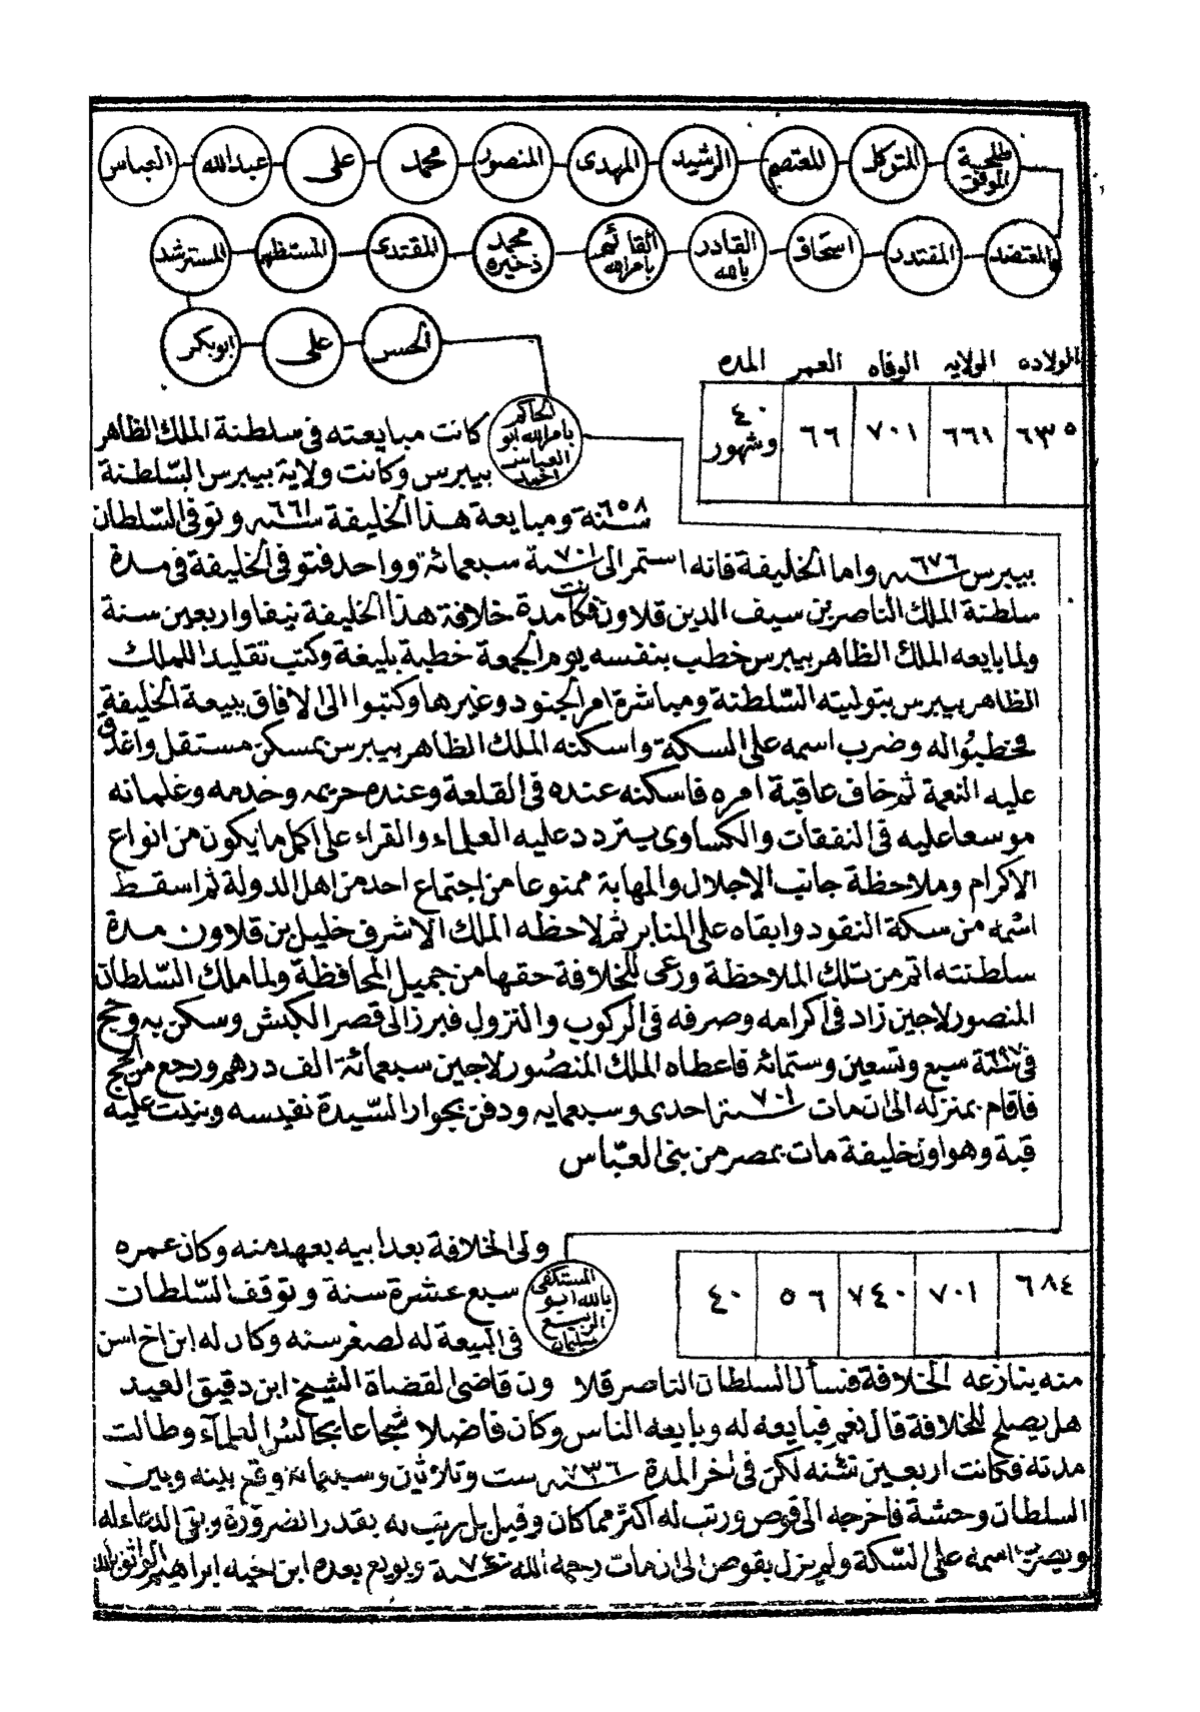 طلحة الموفق المتوكل المعتصم الرشيد المهدى المنصور محمد على عبدالله العباس
المعتضد المقتدر اسحاق القادر بالله القائم بامرالله محمد ذخيره المقتدى المستظهر المسترشد
الحسن على ابوبكر
الولاده الولايه الوفاه العمر المده
٦٣٥ ٦٦١ ٧٠١ ٦٦ ٤٠ وشهور
الحاكم بامرالله ابو العباس احمد
كانت مبايعته فى سلطنة الملك الظاهر
بيبرس وكانت ولاية بيبرس السّلطنة
سنة ٦٥٨ ومبايعة هذا الخليفة سنه ٦٦١ وتوفى السّلطان
بيبرس سنه ٦٧٦ واما الخليفة فانه استمر الى سنة ٧٠١ سبعمائة وواحد فتوفى الخليفة فى مدة
سلطنة الملك الناصر بن سيف الدين قلاون فكانت مدة خلافة هذا الخليفة نيفا واربعين سنة
ولما بايعه الملك الظاهر بيبرس خطب بنفسه يوم الجمعة خطبة بليغة وكتب تقليد اللملك
الظاهر بيبرس بتوليته السّلطنة ومباشرة امر الجنود وغيرها وكتبوا الى الافاق ببيعة الخليفة
فخطبُواله وضرب اسمه على السكة واسكنه الملك الظاهر بيبرس بمسكن مستقل واغدق
عليه النعمة ثم خاف عاقبة امره فاسكنه عنده فى القلعة وعنده حريمه وخدمه وغلمانه
موسعا عليه فى النفقات والكساوى يتردد عليه العلماء والقراء على اكمل ما يكون من انواع
الاكرام وملاحظة جانب الاجلال والمهابة ممنوعا من اجتماع احد من اهل الدولة ثم اسقط
اسْمه من سكة النقود وابقاه على المنابر ثم لاحظه الملك الاشرف خليل بن قلاون مدة
سلطنته اتم من تلك الملاحظة ورعى للخلافة حقها من جميل المحافظة ولما ملك السّلطان
المنصور لاجين زاد فى اكرامه وصرفه فى الركوب والنزول فبرز الى قصر الكبش وسكن به وحج
فى سنة ٦٩٧ سبع وتسعين وستمائة فاعطاه الملك المنصُور لاجين سبعمائة الف درهم ورجع من الحج
فاقام بمنزله الى ان مات سنة ٧٠١ احدى وسبعمايه ودفن بجوار السّيدة نفيسه وبنيت عليه
قبة وهو اول خليفة مات بمصر من بنى العبّاس
٦٨٤ ٧٠١ ٧٤٠ ٥٦ ٤٠
المستكفى بالله ابو الربيع سليمان
ولى الخلافة بعد ابيه بعهد منه وكان عمره
سبع عشرة سنة وتوقف السّلطان
فى البيعة له لصغر سنه وكان له ابن اخ اسن
منه ينازعه الخلافة فسأل السلطان الناصر قلاون قاضى القضاة الشيخ ابن دقيق العيد
هل يصلح للخلافة قال نعم فبايعه له وبايعه الناس وكان فاضلا شجاعا يجالس العلمآء وطالت
مدته فكانت اربعين سنه لكن فى اخر المدة سنه ٧٣٦ ست وثلاثين وسبعمائة وقع بينه وبين
السلطان وحشة فاخرجه الى قوص ورتب له اكثر مما كان وقيل بل رتب له بقدر الضرورة وبقى الدعاء له
ويضرب اسمه على السّكة ولم يزل بقوص الى ان مات رحمه الله سنة ٧٤٠ وبويع بعده ابن اخيه ابراهيم الواثق بالله